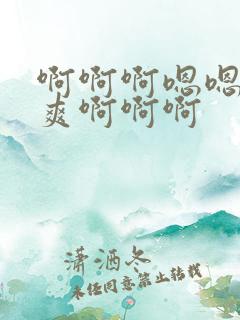 啊啊啊嗯嗯
爽啊啊啊
潇洒冬
未经同意禁止转载